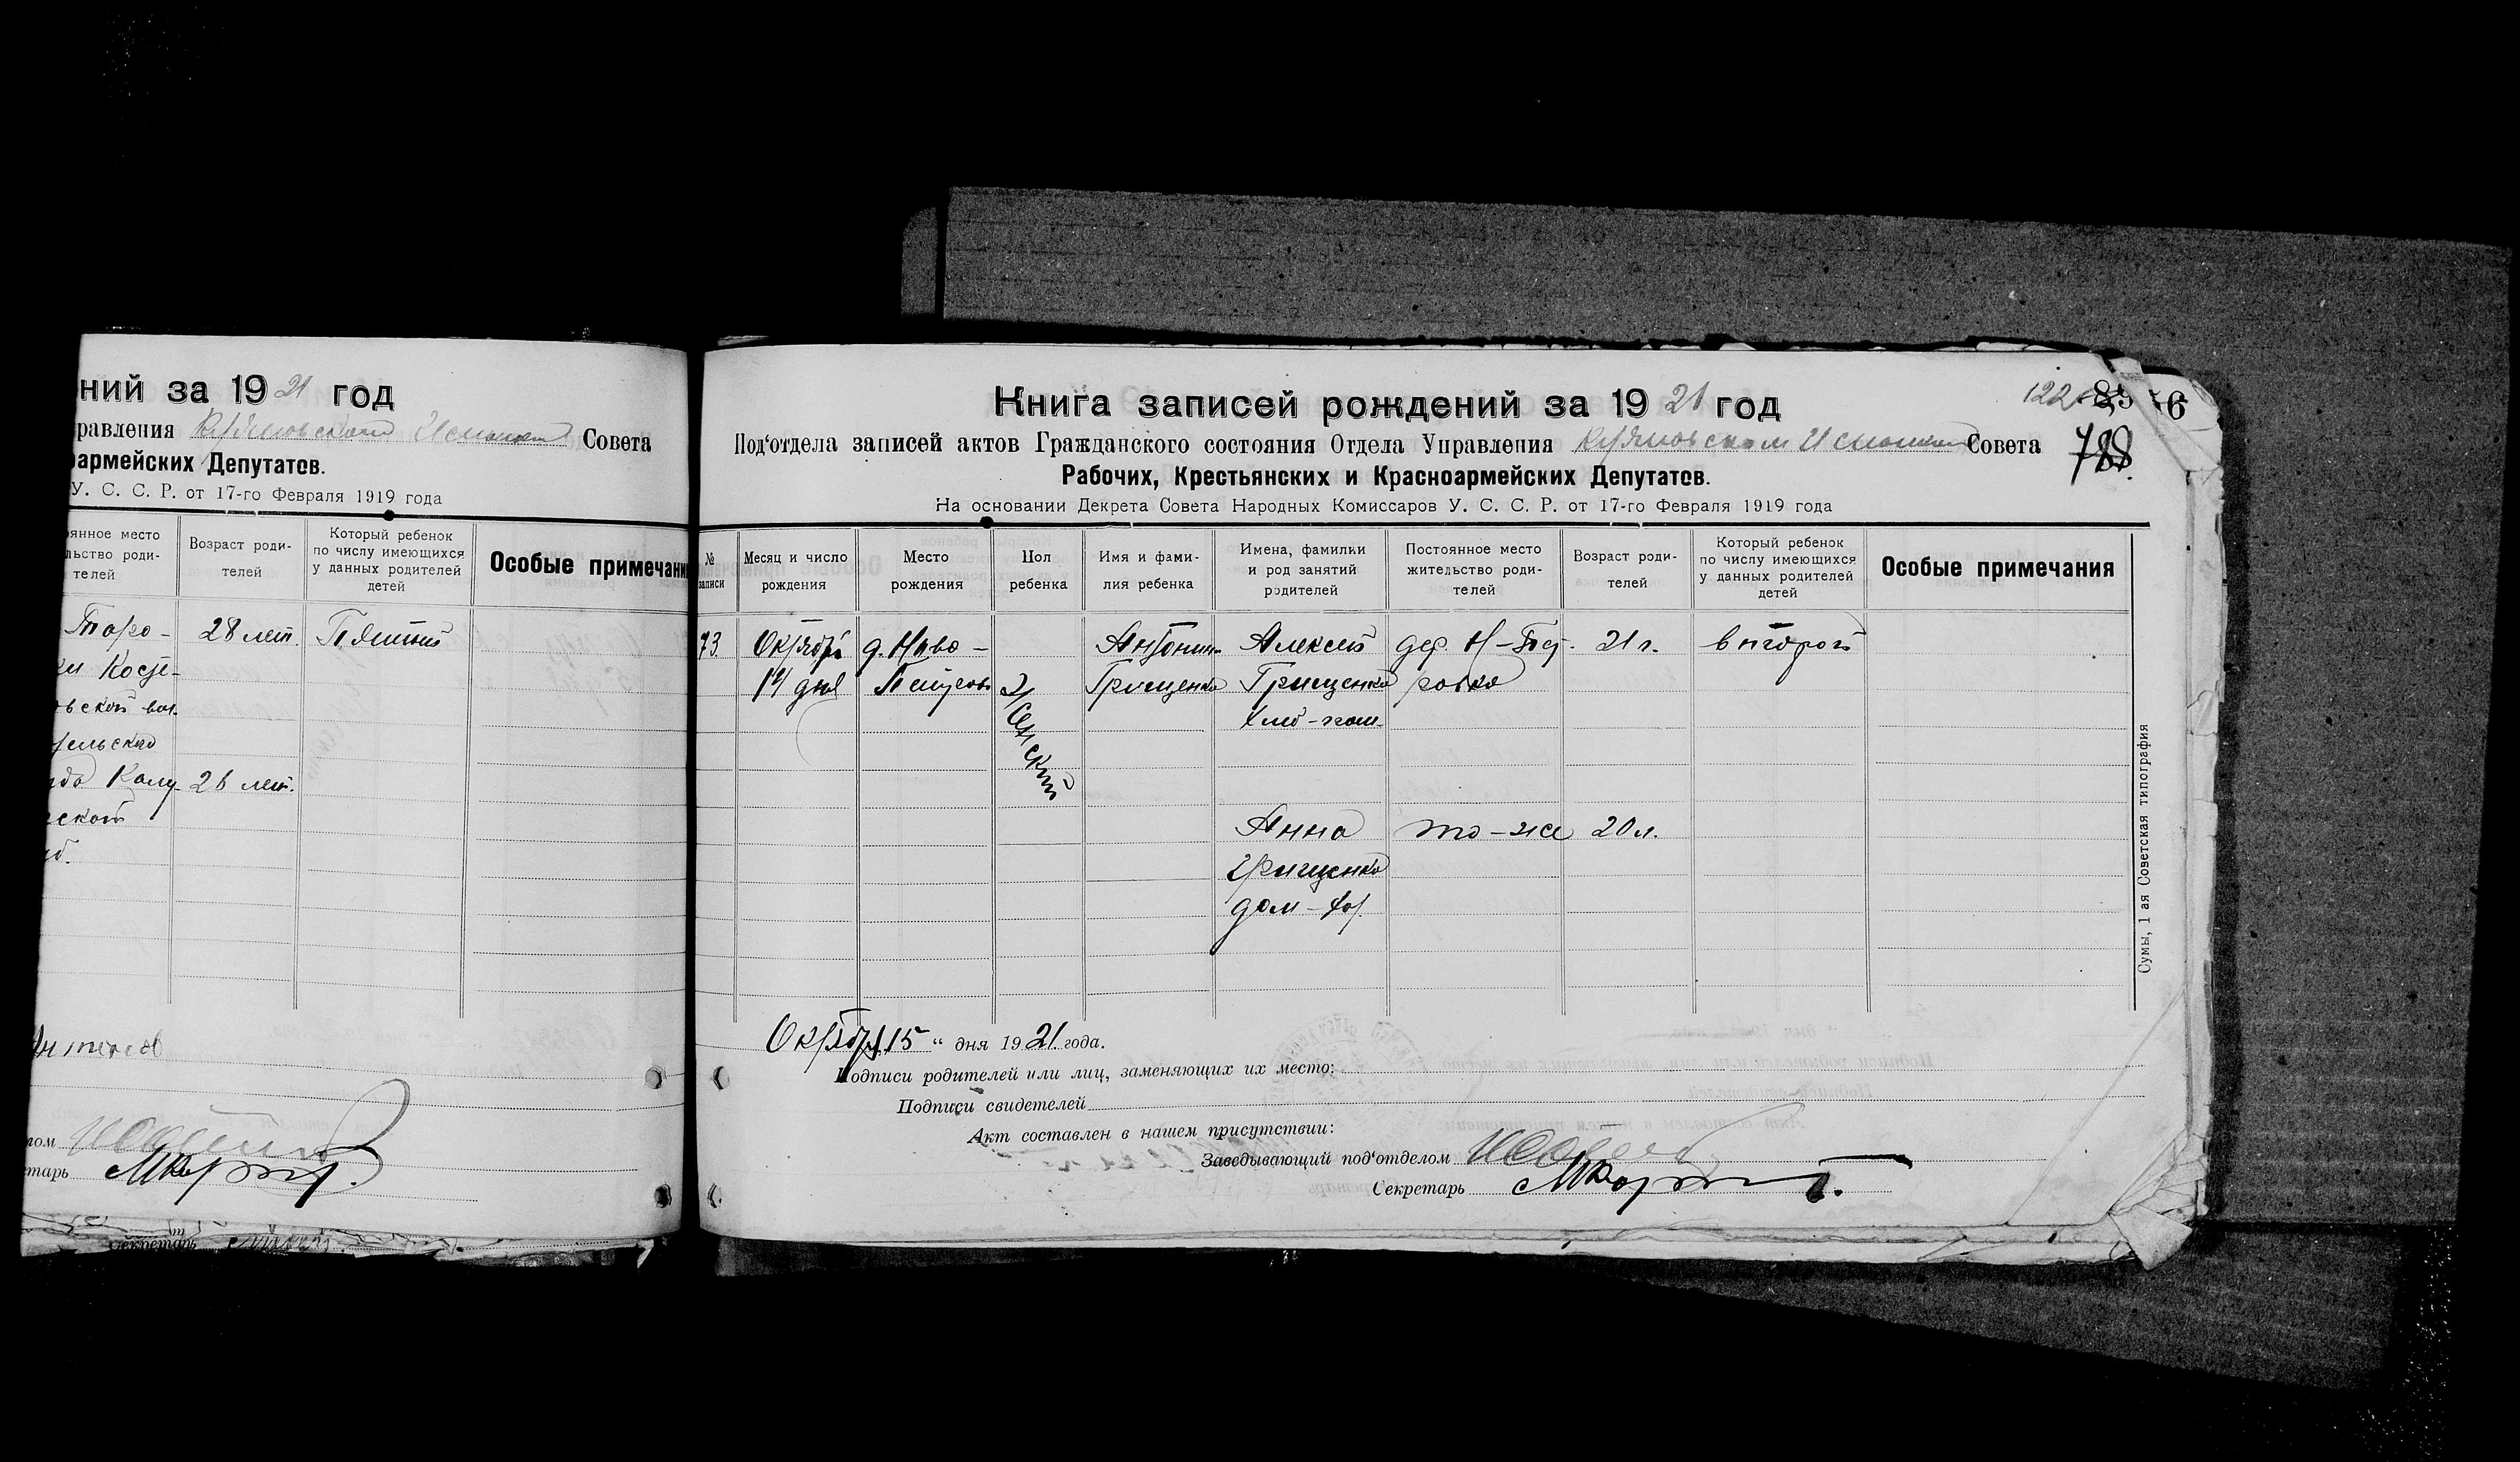 ний за 1921 год
равления Совета
армейских Депутатов.
У. С. С. Р. от 17-го Февраля 1919 года
янное место
льство роди-
телей
Возраст роди-
телей
Который ребенок
по числу имеющихся
у данных родителей
детей
Особые примечани
28 лет.
Пятий
26 лет.
тарь
Секретарь
Книга записей рождений за 1921 год
Под'отдела записей актов Гражданского состояния Отдела Управления Совета
Рабочих, Крестьянских и Красноармейских Депутатов.
На основании Декрета Совета Народных Комиссаров У. С. С. Р. от 17-го Февраля 1919 года
788
№
записи
Месяц и число
рождения
Место
рождения
Пол
ребенка
Имя и фами-
лия ребенка
Имена, фамилии
и род занятий
родителей
Постоянное место
жительство роди-
телей
Возраст роди-
телей
Который ребенок
по числу имеющихся
у данных родителей
детей
Особые примечания
73.
Октября
14 дня
д. Ново-
Петров
Женский
Антонин
Грищенко
Алексей
Грищенко
дер. Н-Пет-
ровка
21 г.
второй
Анна
Грищенко
то-же
20 л.
Октября 15 " дня 1921 года.
Подписи родителей или лиц, заменяющих их место:
Подписи свидетелей
Акт составлен в нашем присутствии:
Заведывающий под'отделом
Секретарь
Сумы, 1 ая Советская типография